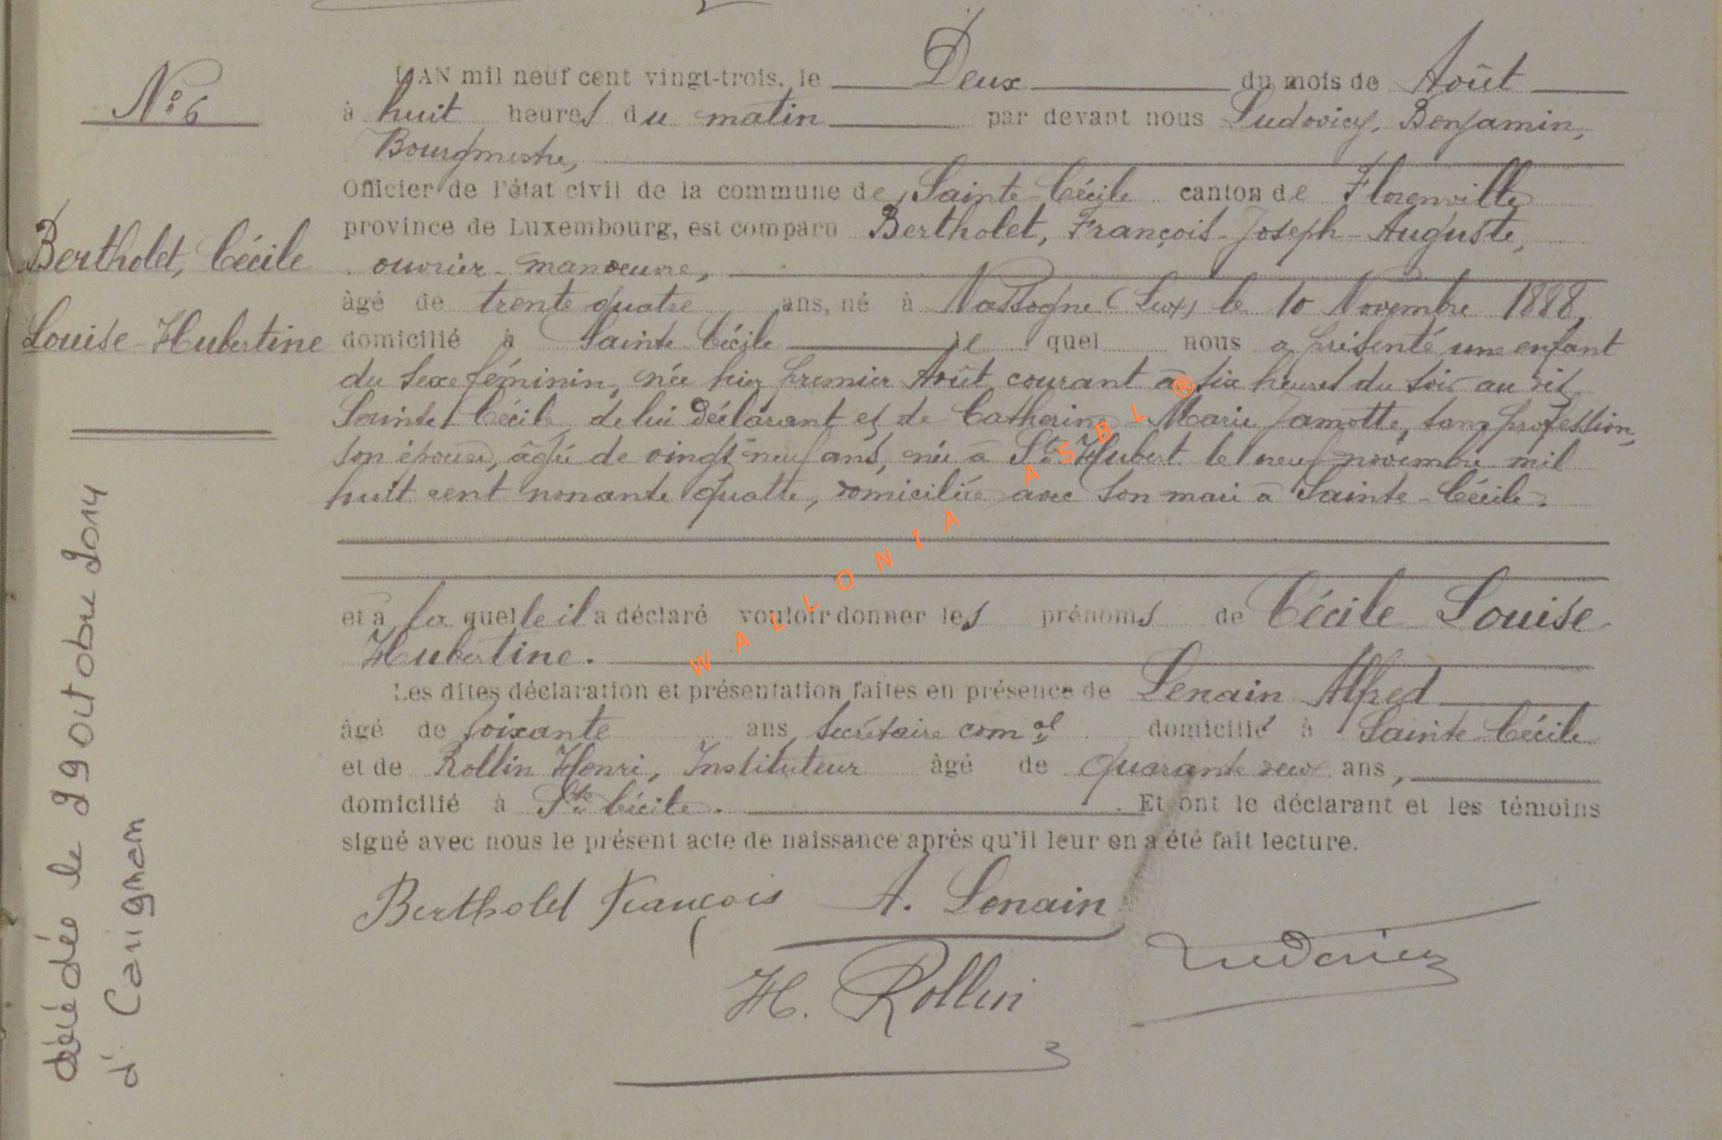 N° 6
Bertholet, Cécile
Louise-Hubertine
décédée le 29 octobre 2014
à Carignan
L'AN mil neuf cent vingt-trois, le Deux du mois de Août
à huit heures du matin par devant nous Ludovicy, Benjamin,
Bourgmestre,
Officier de l'état civil de la commune de Sainte-Cécile canton de Florenville
province de Luxembourg, est comparu Bertholet, François-Joseph-Auguste,
ouvrier-manoeuvre,
âgé de trente quatre ans, né à Nassogne (Lux) le 10 Novembre 1888,
domicilié à Sainte Cécile le quel nous a présenté une enfant
du sexe féminin, née hier premier Août courant à six heures du soir au dit
Sainte Cécile, de lui déclarant et de Catherine-Marie Jamotte, sans profession,
son épouse, âgée de vingt-neuf ans, née à St Hubert le neuf novembre mil
huit cent nonante quatre, domiciliée avec son mari à Sainte-Cécile.
et à la quelle il a déclaré vouloir donner les prénoms de Cécile Louise
Hubertine.
Les dites déclaration et présentation faites en présence de Lenain Alfred
âgé de soixante ans, secrétaire comal domicilié à Sainte Cécile
et de Rollin Henri, Instituteur âgé de quarante deux ans,
domicilié à Ste Cécile. Et ont le déclarant et les témoins
signé avec nous le présent acte de naissance après qu'il leur en a été fait lecture.
Bertholet François A. Lenain
H. Rollin Ludovicy
WALLONIA ASBL ®